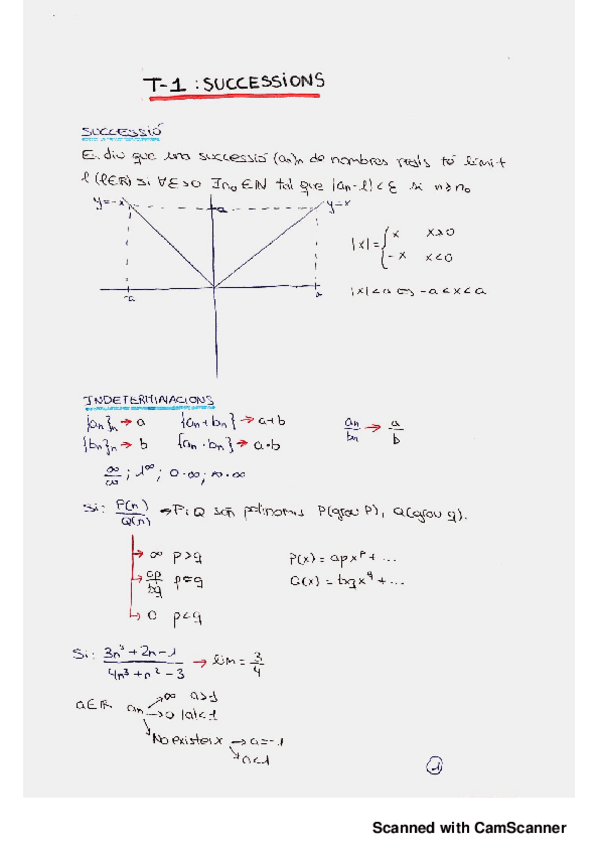 T-1 : SUCCESSIONS
SUCCESSIÓ
Es diu que una successió (an)n de nombres reals té límit
l (l∈R) si ∀ε>0 ∃n₀∈N tal que |an-l|<ε si n≥n₀
y=-x a y=x
|x|={ x x≥0
-x x<0
-a a
|x|<a ⇔ -a<x<a
INDETERMINACIONS
{an}n → a {an+bn} → a+b an/bn → a/b
{bn}n → b {an·bn} → a·b
∞/∞ ; 1^∞ ; 0·∞ ; ∞·∞
Si: P(n)/Q(n) → P i Q són polinomis P(grau P), Q(grau q).
→ ∞ p>q P(x) = apx^p + ...
→ ap/bq p=q Q(x) = bqx^q + ...
→ 0 p<q
Si: 3n³+2n-1/4n³+n²-3 → lim = 3/4
a∈R an → ∞ a>1
→ 0 |a|<1
No existeix → a=-1
a<1
1
Scanned with CamScanner